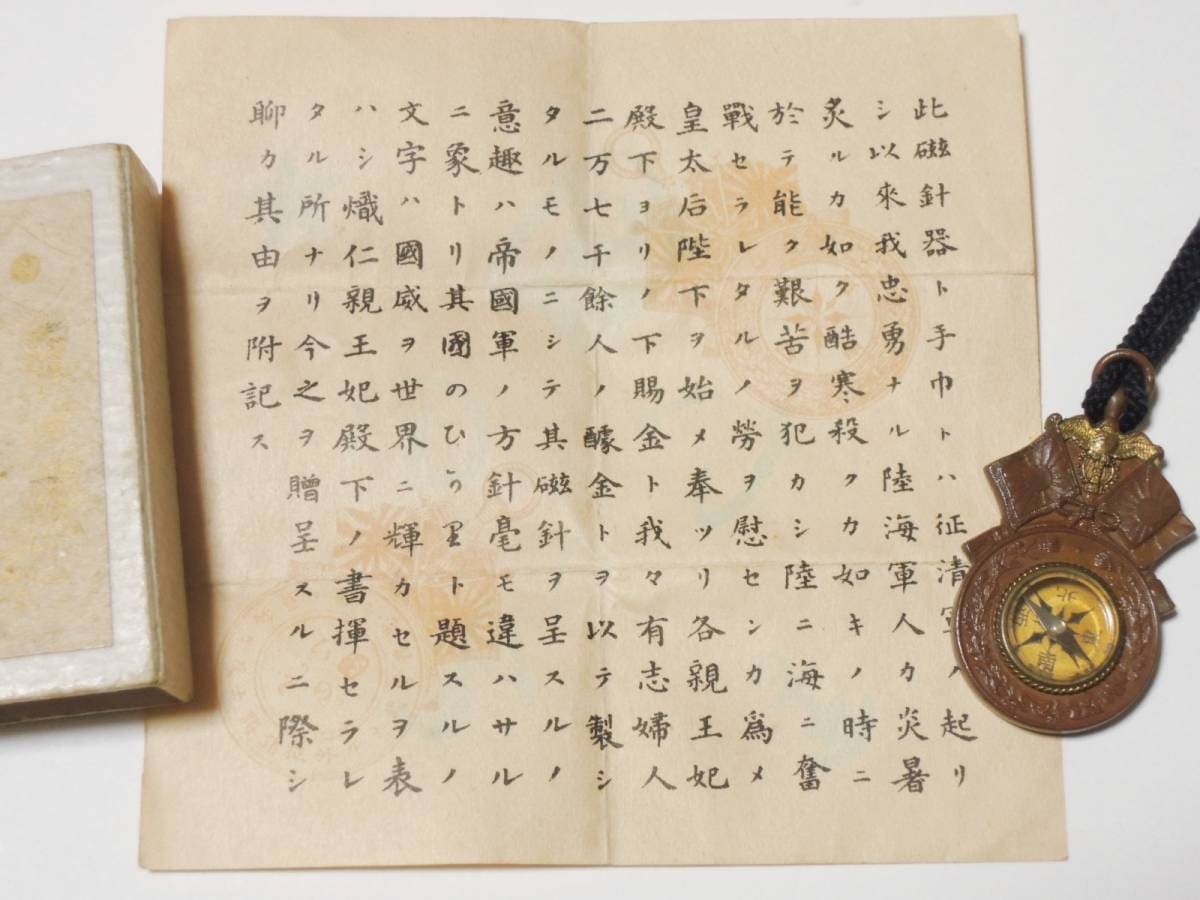 此磁針器ト手巾トハ征清軍ノ起リ
シ以來我忠勇ナル陸海軍人カ炎暑
炙ルカ如ク酷寒殺クカ如キノ時ニ
於テ能ク艱苦ヲ犯カシ陸ニ海ニ奮
戰セラレタルノ勞ヲ慰センカ爲メ
皇太后陛下ヲ始メ奉ツリ各親王妃
殿下ヨリノ下賜金ト我々有志婦人
二万七千餘人ノ醵金トヲ以テ製シ
タルモノニシテ其磁針ヲ呈スルノ
意趣ハ帝國軍ノ方針毫モ違ハサル
ニ象トリ其國のひかりト題スルノ
文字ハ國威ヲ世界ニ輝カセルヲ表
ハシ熾仁親王妃殿下ノ書揮セラレ
タル所ナリ今之ヲ贈呈スルニ際シ
聊カ其由ヲ附記ス
北
西
東
南